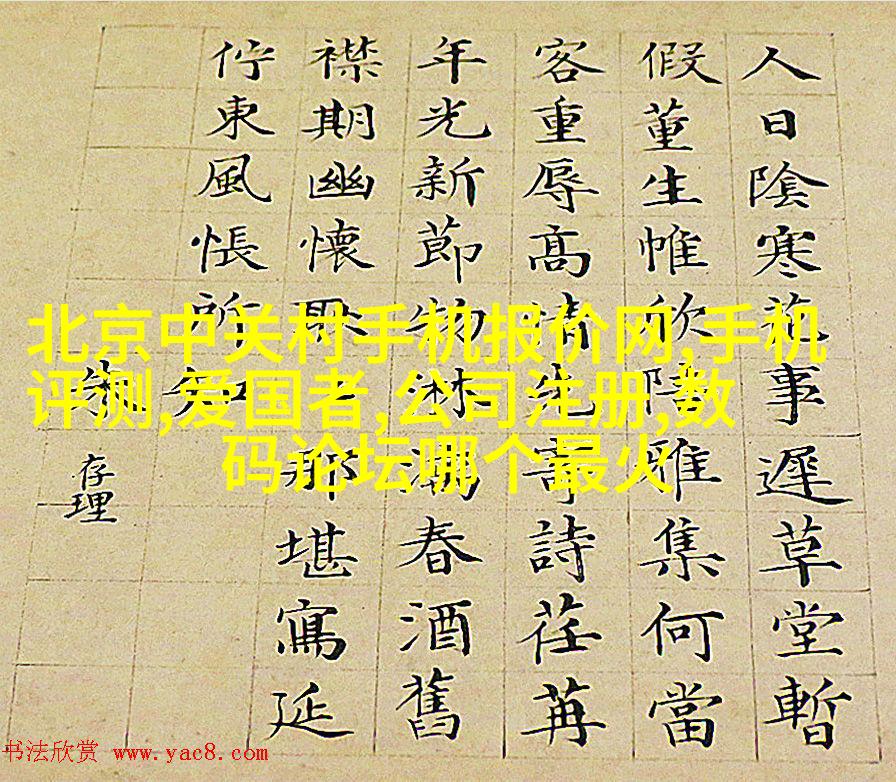 人日陰寒花事遲草堂暫
假董生帷欣陪雅集何當
客重辱高情先寄詩荏苒
年光新節物淋漓春酒舊
襟期幽懷那堪寫延
佇東風悵所知
朱存理
北京中关村手机报价网,手机
评测,爱国者,公司注册,数
码论坛哪个最火
书法欣赏 www.yac8.com